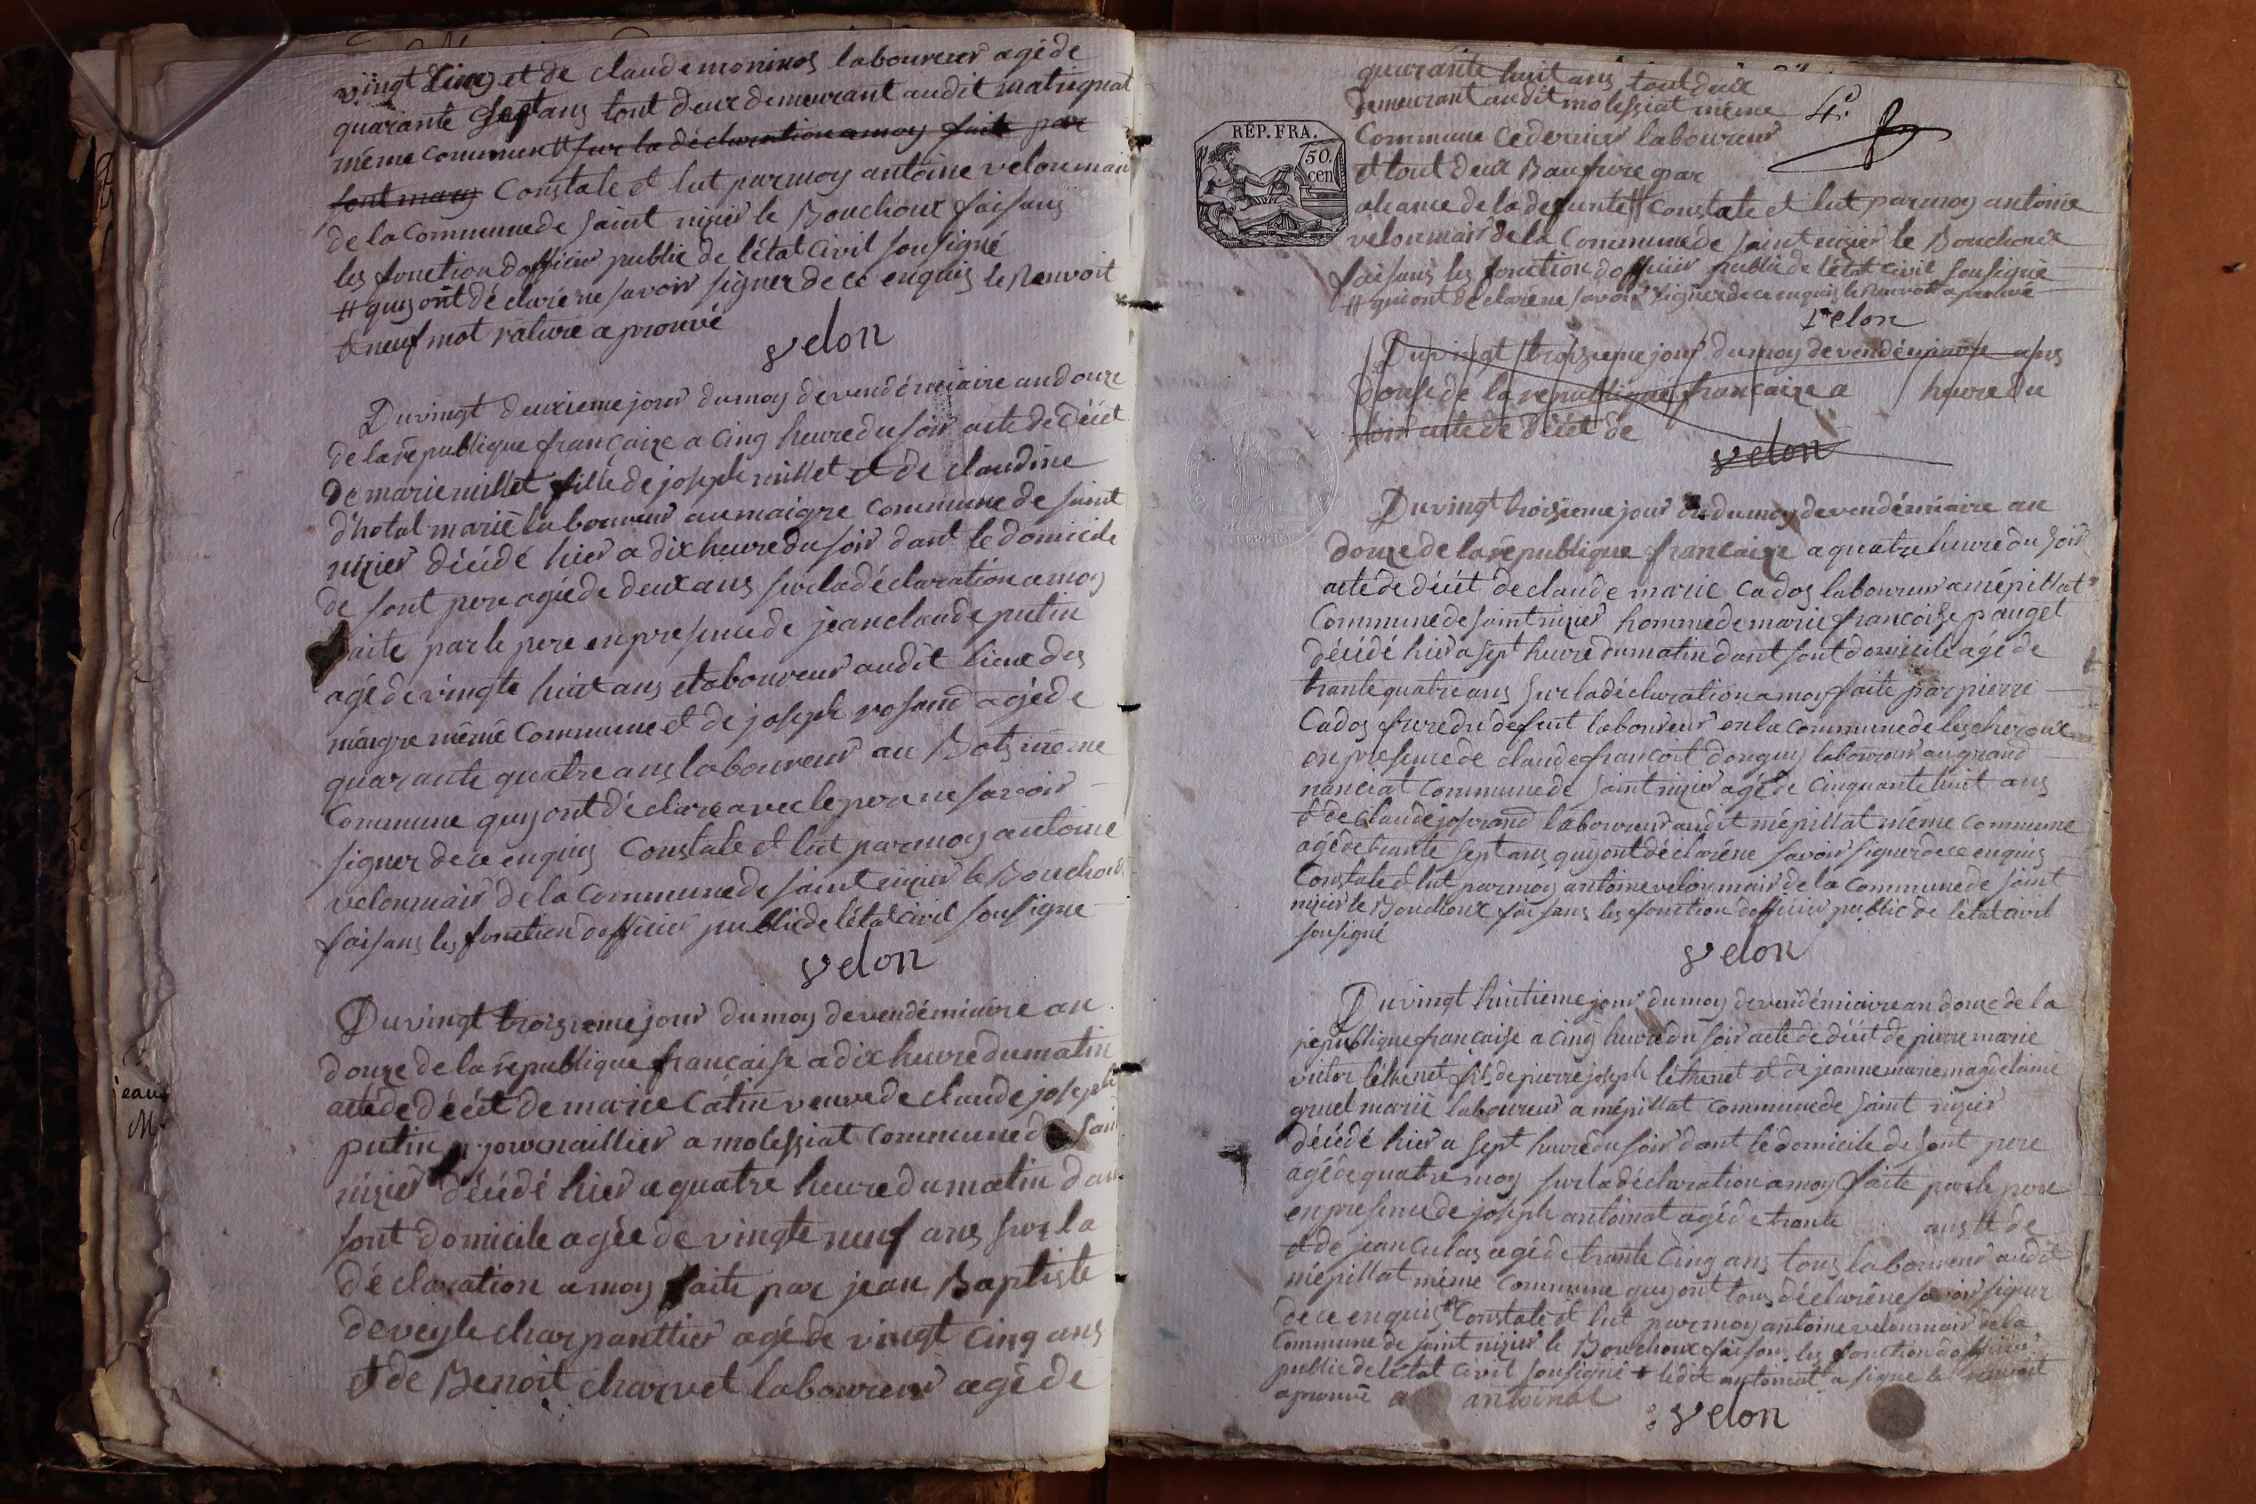 vingt Cinq et de claude moninos laboureur agé de
quarante Sept ans tout deux demeurant audit
même commune # sur la déclaration a moy faite par
sont mary Constate et lut par moy antoine velon mair
de la Commune de Saint nizier le Bouchoux faisans
les fonction dofficier public de l'état Civil sousigné
# quy ont déclaré ne savoir signer de ce enquis le Renvoit
& neuf mot raturé aprouvé
velon
Du vingt deuxieme jour du moy de vendémiaire an douze
de la république francaize a Cinq heure du soir acte de décét
de marie millet fille de joseph millet et de claudine
d'hotal marié laboureur au maigre commune de saint
nizier décédé hier a dix heure du soir dant le domicile
de sont pere agée de deux ans sur la déclaration a moy
faite par le pere en presence de jean claude putin
agé de vingte huit ans laboureur audit lieux des
maigre même Commune et de joseph rosand agé de
quarante quatre ans laboureur au Bots même
Commune quy ont déclaré avec le pere ne savoir
signer de ce enquis Constate et lut par moy antoine
velon mair de la Commune de saint nizier le Bouchoux
faisans les fonction dofficier public de l'état Civil sousigné
velon
Du vingt troizieme jour du moy de vendémiaire an
douze de la république francaise a dix heure du matin
acte de décét de marie Catin veuve de claude joseph
putin journaillier a molessiat Commune de Saint
nizier décédé hier a quatre heure du matin dant
sont domicile agée de vingte neuf ans sur la
déclaration a moy faite par jean Baptiste
deveyle charpanttier agé de vingt Cinq ans
et de Benoit charvet laboureur agé de
jean
M
quarante huit ans tout deux
demeurant audit molessiat même
Commune ce dernier laboureur
et tout deux Baufrere par
aliance de la defunte # Constate et lut par moy antoine
velon mair de la Commune de saint nizier le Bouchoux
faisans les fonction dofficier public de l'état Civil sousigné
# quy ont déclaré ne savoir signer de ce enquis le Renvoit aprouvé
velon
4e
RÉP. FRA.
50
cen
Du vingt troizieme jour du moy de vendémiaire ans
douse de la republique francaize a heure du
soir acte de décét de
velon
Du vingt troizieme jour du moy de vendémiaire an
douze de la république francaize a quatre heure du soir
acte de décét de claude marie Cados laboureur a mépillat
Commune de saint nizier homme de marie francoise pauget
décédé hier a sept heure du matin dant sont domicile agé de
trante quatre ans sur la déclaration a moy faite par pierre
Cados frere du defunt laboureur en la commune de lescheroux
en presence de claude francois donguy laboureur au grand
nanciat commune de saint nizier agé de cinquante huit ans
& de claude josserand laboureur audit mépillat même commune
agé de trante sept ans quy ont déclaré ne savoir signer de ce enquis
Constate et lut par moy antoine velon mair de la Commune de saint
nizier le Bouchoux faisans les fonction dofficier public de l'état civil
sousigné
velon
Du vingt huitieme jour du moy de vendémiaire an douze de la
republique francaise a cinq heure du soir acte de décét de pierre marie
victor léthenet fils de pierre joseph léthenet et de jeanne marie magdelaine
gruel marié laboureur a mépillat commune de saint nizier
décédé hier a sept heure du soir dant le domicile de sont pere
agé de quatre moy sur la déclaration a moy faite par le pere
en presence de joseph antoinat agé de trante ans # de
et de jean Culas agé de trante cinq ans tous laboureur audit
mépillat même Commune quy ont tous déclaré ne savoir signer
de ce enquis # Constate et lut par moy antoine velon mair de la
Commune de saint nizier le Bouchoux faisans les fonction dofficier
public de l'état civil sousigné # ledit antoinat a signé le renvoit
aprouvé a antoinat
velon